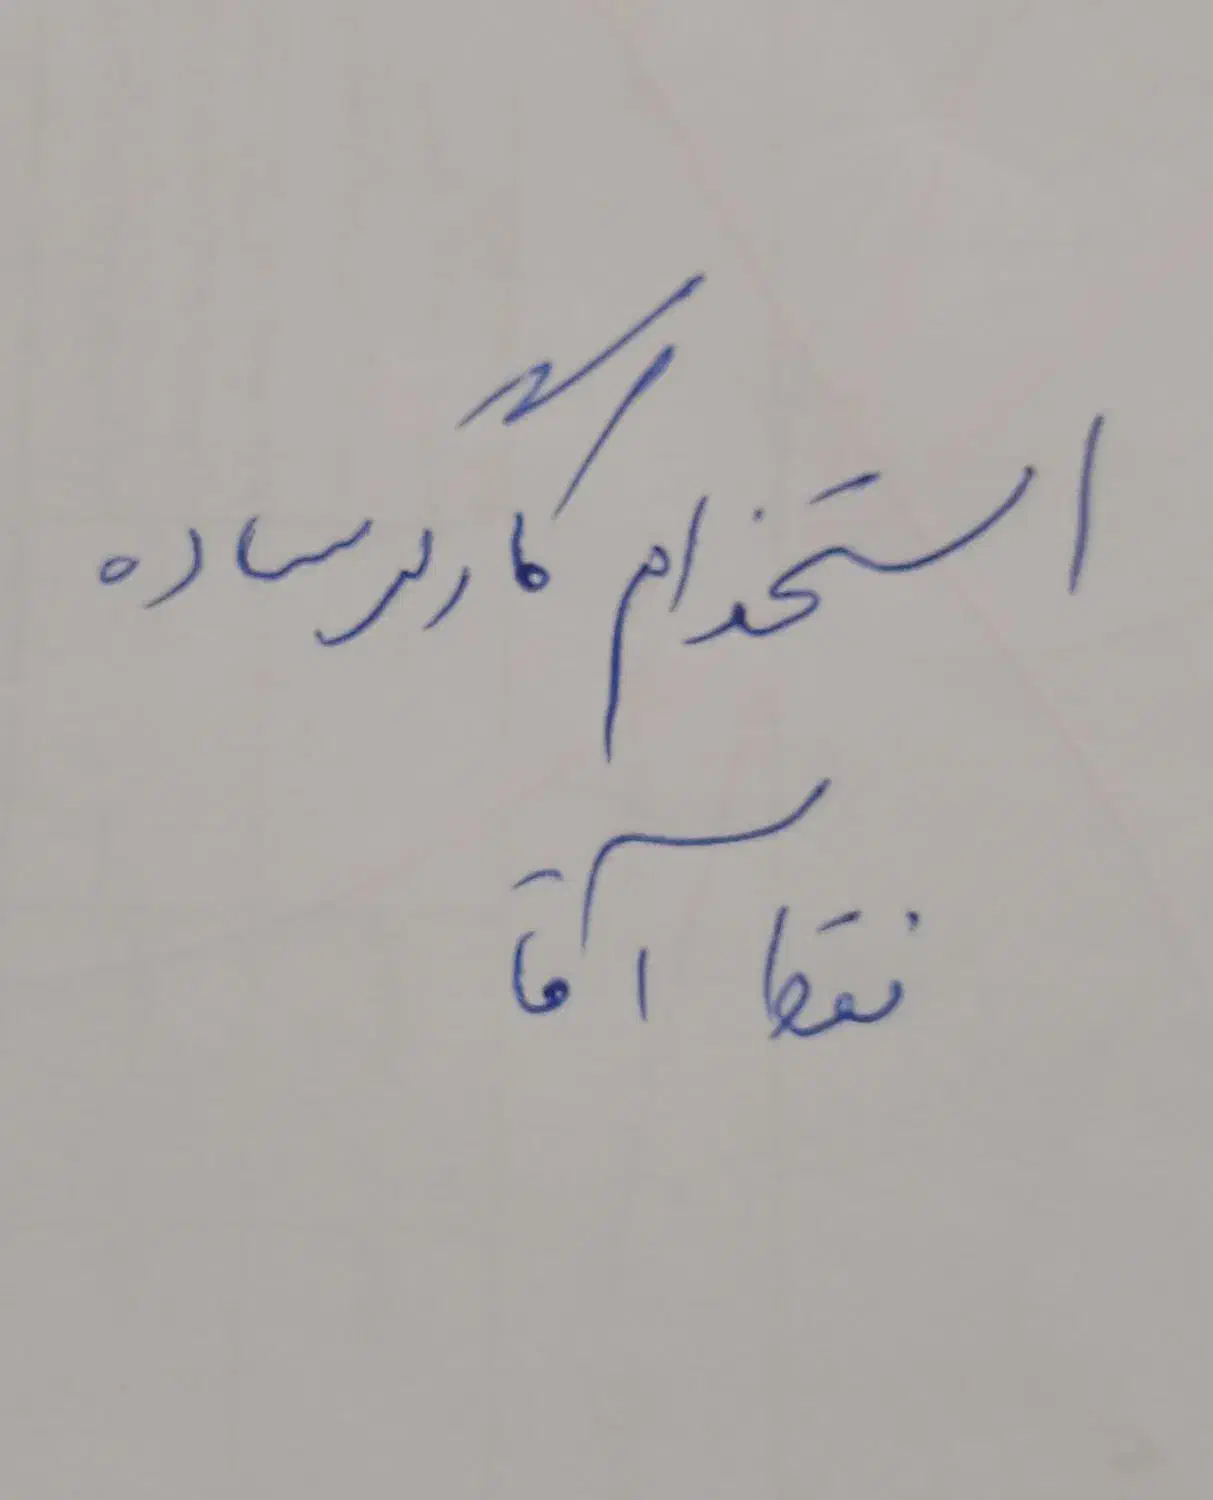 استخدام کارگر ساده
فقط آقا